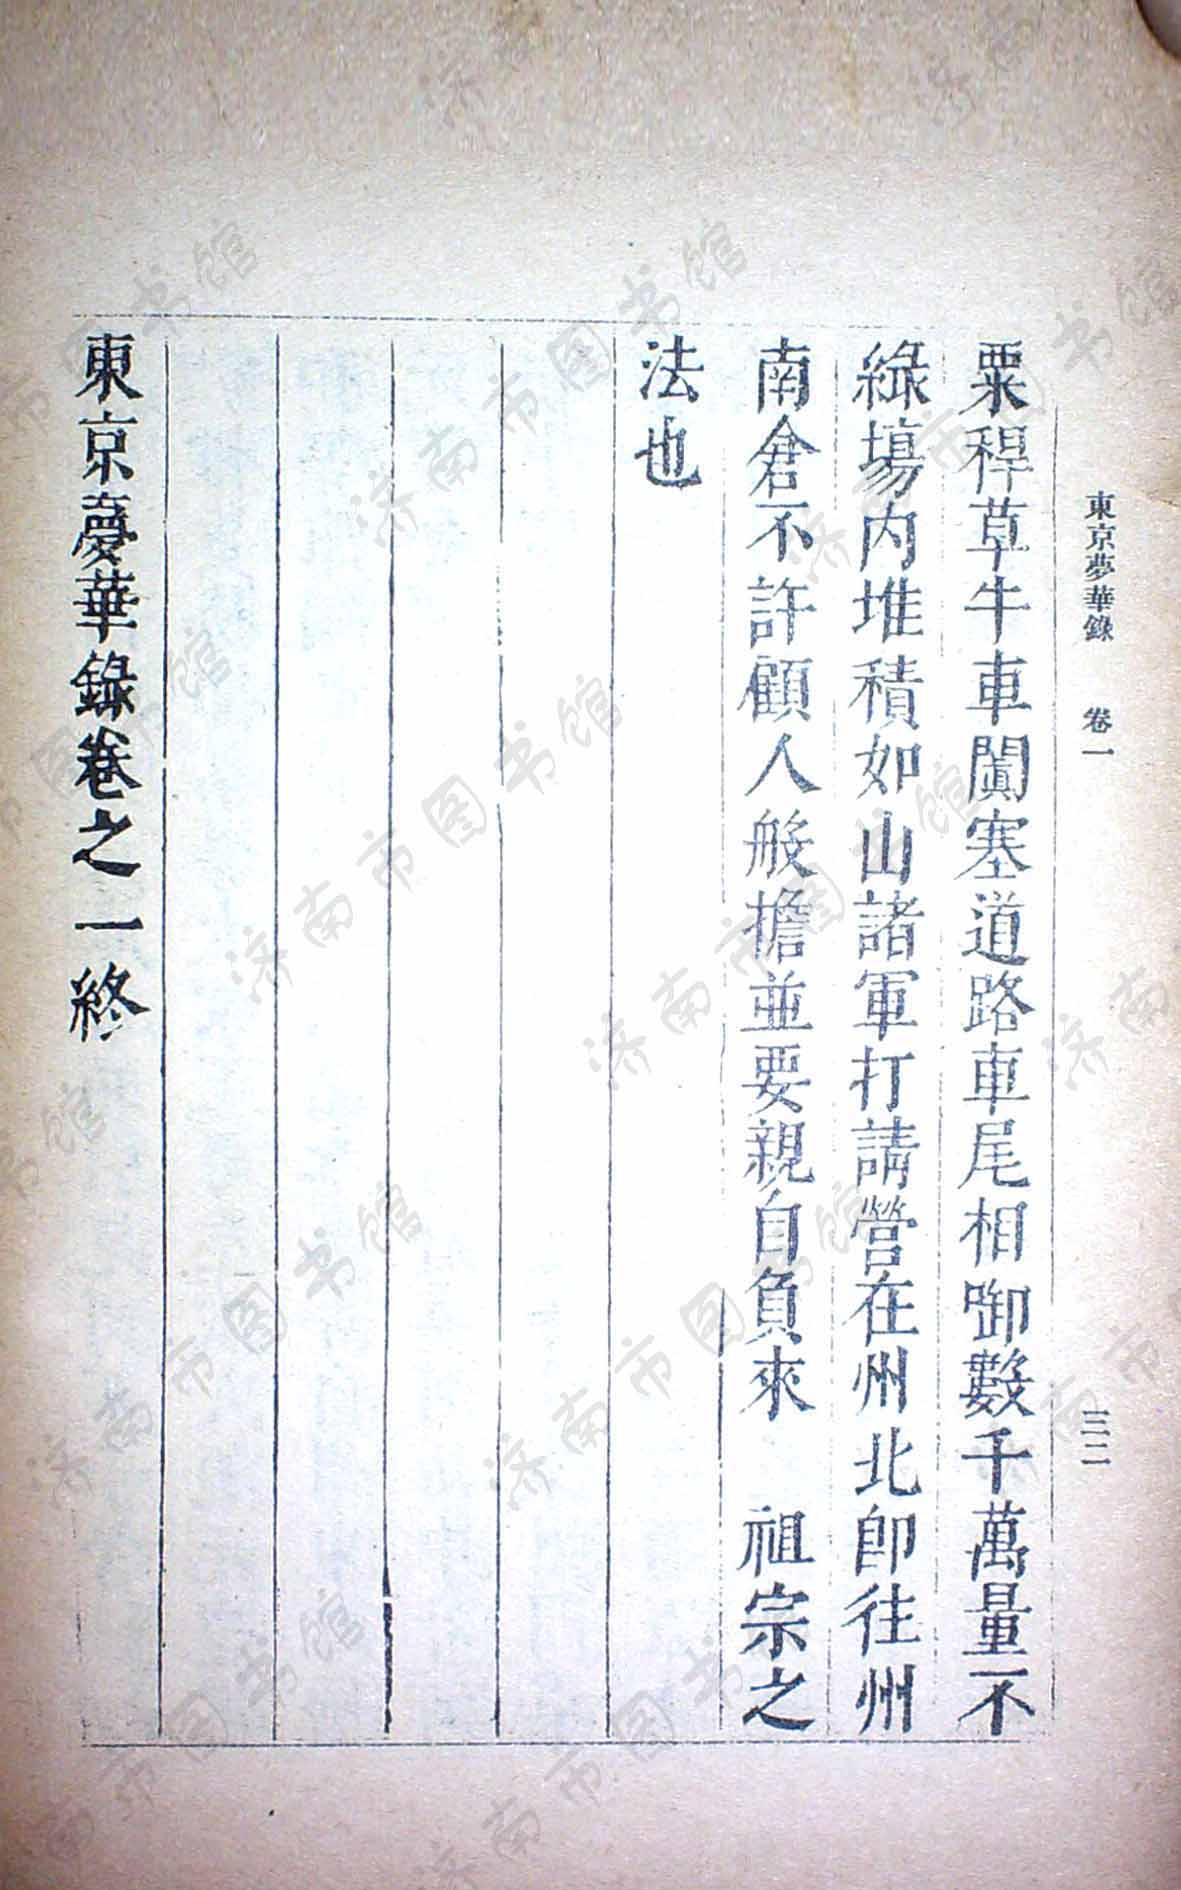 東京夢華錄　卷一　三二
粟稈草牛車闐塞道路車尾相啣數千萬量不
絕場內堆積如山諸軍打請營在州北即往州
南倉不許顧人般擔並要親自負來　祖宗之
法也
東京夢華錄卷之一終
济南市图书馆